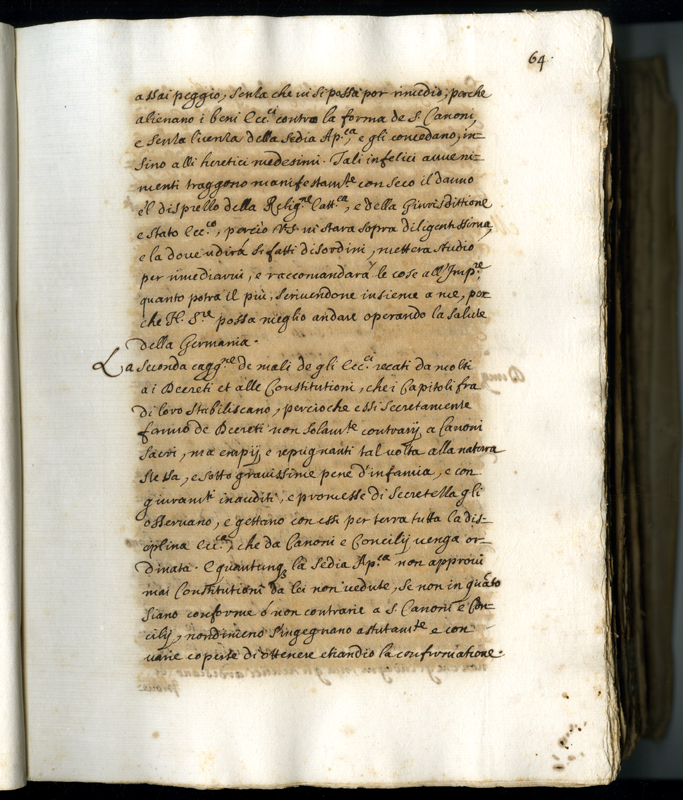 64.
assai peggio, senza che vi si possa por rimedio; perche
alienano i beni Ecc.ci contro la forma de S. Canoni,
e senza licenza della Sedia Ap.ca, e gli concedano, in-
sino alli heretici medesimi. Tali infelici avveni-
menti traggono manifestam.te con seco il danno
e'l disprezzo della Relig.ne Catt.ca, e della Giurisdittione
e stato Ecc.co, perciò V.S. vi stara sopra diligentissima,
e la dove udirá si fatti disordini, mettera studio
per rimediarvi, e raccomandará le cose all'Imp.re
quanto potrá il più, scrivendone insieme a me, per
che N. S.re possa meglio andare operando la salute
della Germania.
La seconda cagg.ne de mali de gli Ecc.ci recati da molti
ai Decreti et alle Constitutioni, che i Capitoli fra
di loro stabiliscano, percioche essi secretamente
fanno de Decreti non solam.te contrarij a Canoni
sacri, ma empij e repugnanti tal volta alla natura
stessa, e sotto gravissime pene d'infamia, e con
giuram.ti inauditi, e promesse di secretezza gli
osservano, e gettano con essi per terra tutta la dis-
ciplina Ecc.ca, che da Canoni e Concilij venga or-
dinata. E quantunq3 la Sedia Ap.ca non approvi
mai Constitutioni da lei non vedute, se non in quãto
siano conforme ó non contrarie a S. Canoni e Con-
cilij, nondimeno s'ingegnano astutam.te e con
varie coperte di ottenere etiandio la confirmatione.